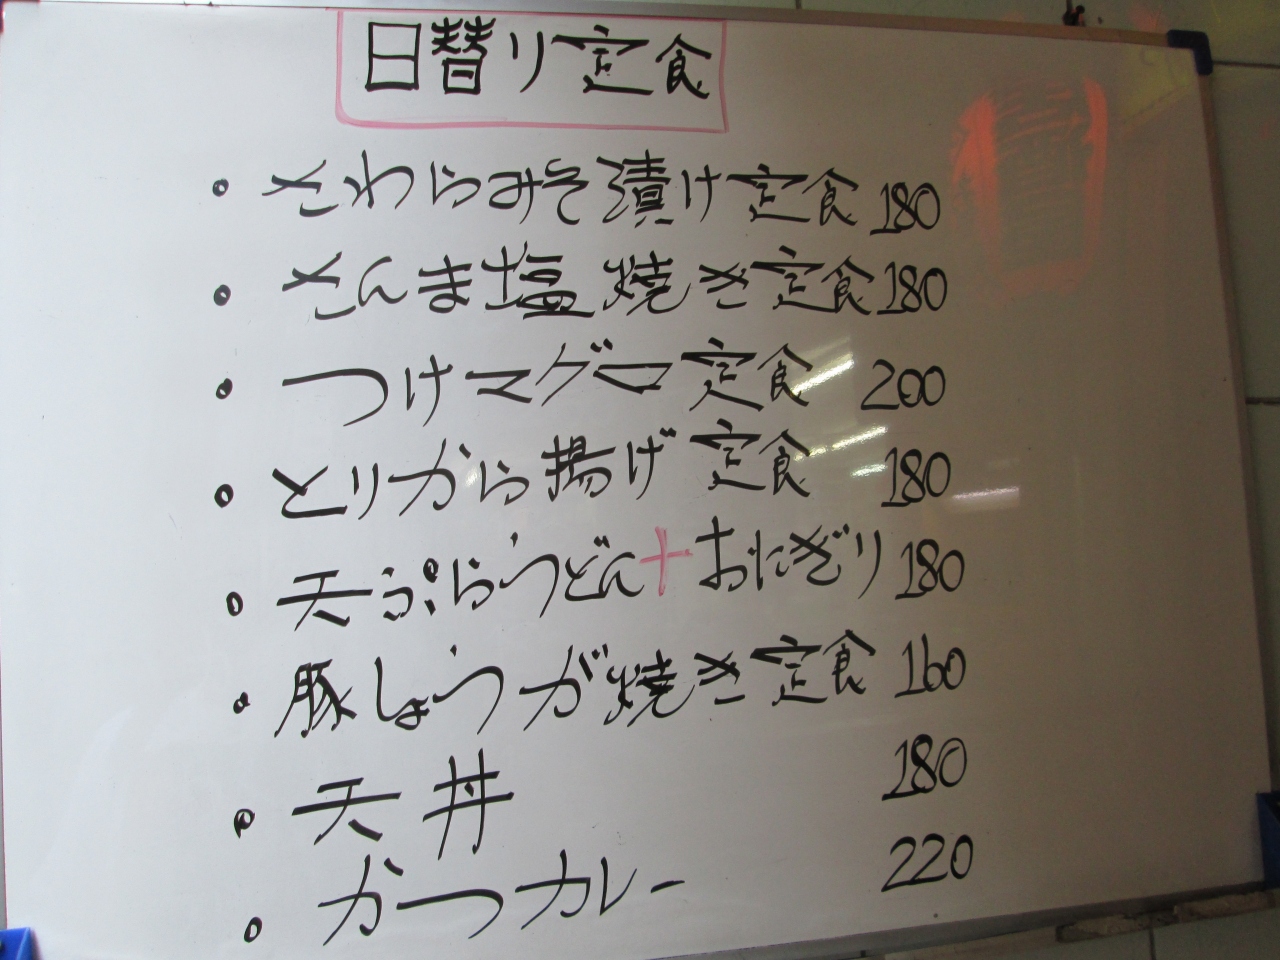 日替り定食
・さわらみそ漬け定食 180
・さんま塩焼き定食 180
・つけマグロ定食 200
・とりから揚げ定食 180
・天ぷらうどん+おにぎり 180
・豚しょうが焼き定食 160
・天丼 180
・かつカレー 220